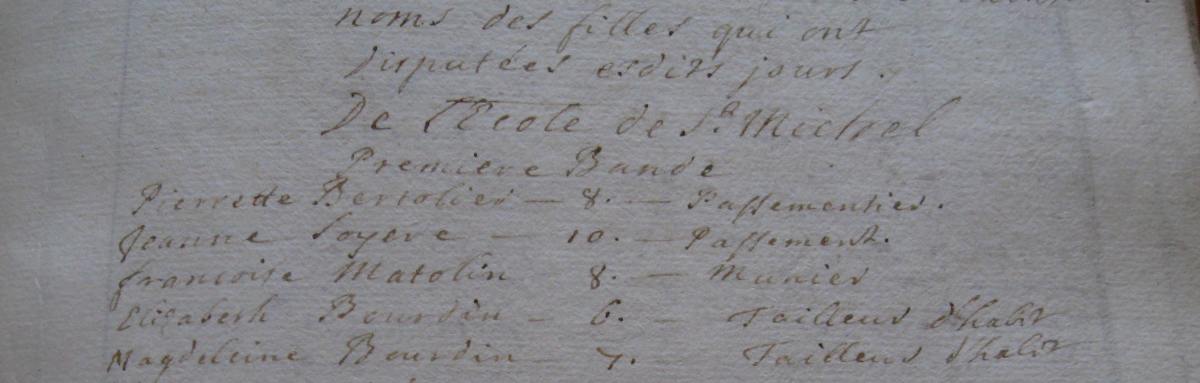 noms des filles qui ont
disputées esdits jours.
De l'Ecole de St. Michel
Premiere Bande
Pierrette Bertolier — 8. — Passementier.
Jeanne Soyere — 10. — Passement.
francoise Matolin 8. — Munier
Elizabeth Bourdin — 6. — Tailleur d'habit
Magdeleine Bourdin — 7. Tailleur d'habit